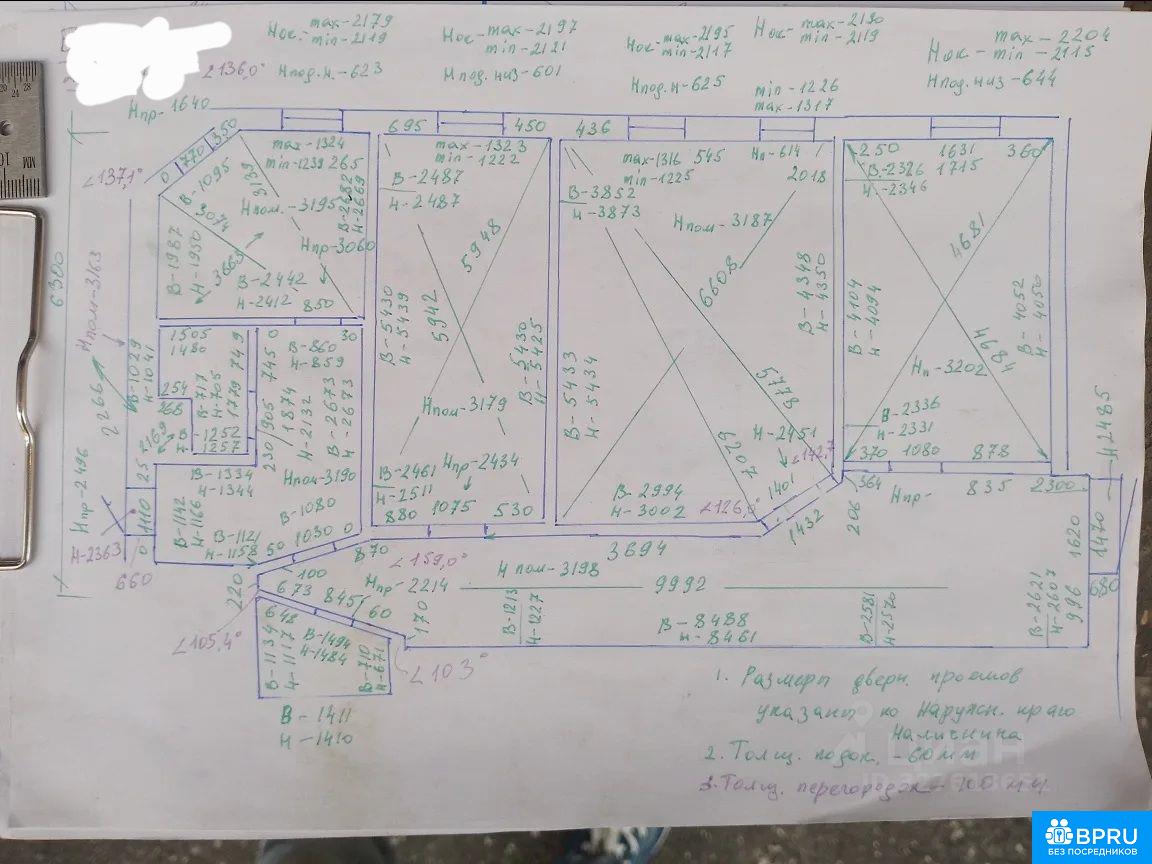 Нок.- max-2179
min-2119
Нок- max-2197
min-2121
Нок- max-2195
min-2117
Нок- max-2130
min-2119
Нок- max-2204
min-2115
∠136,0°
Нпод.н.-623
Нпод.низ-601
Нпод.н-625
min-1226
max-1317
Нпод.низ-644
Нпр-1640
∠137,1°
0 770 350
max-1324
min-1239 265
695
450
max-1323
min-1222
436
max-1316 545
min-1225
Нп-614
2018
250 1631 360
В-2326 1715
Н-2346
В-1095
3139
3074
Нпом.-3195
В-2682
Н-2669
Нпр-3060
В-1987
Н-1950
3663
В-2442
Н-2412
850
В-2487
Н-2487
5948
5942
В-5430
Н-5439
В-5430
Н-5425
Нпом-3179
В-2461
Н-2511
Нпр-2434
880 1075 530
В-3852
Н-3873
Нпом-3187
6608
В-4348
Н-4350
5778
В-5433
Н-5434
Н-2451
∠142,7
7029
В-2994
Н-3002
∠126,0°
1401
1432
4681
4684
В-4104
Н-4094
В-4052
Н-4050
Нп-3202
В-2336
Н-2331
370 1080 878
6300
Нпом-3163
2266
В-1029
Н-1041
1505
1480
749
254
268
В-717
Н-705
1779
2169
В-1252
1257
0
30
745
905
230
В-860
Н-859
1874
Н-2132
В-2673
Н-2673
В-1334
Н-1344
Нпом-3190
В-1080
Нпр-2496
25
1110
0
Н-2363
660
В-1142
Н-1166
В-1121
Н-1158
50 1030 0
870
∠159,0°
3694
364
206
Нпр-
835
2300
Н-2485
1470
1620
680
996
В-2621
Н-2607
220
100
673
845
60
Нпр-2214
170
Н пом-3198
9992
В-1213
Н-1227
В-8488
Н-8461
В-2581
Н-2570
∠105,4°
648
В-1134
Н-1117
В-1494
Н-1484
В-710
Н-671
∠103°
В-1411
Н-1410
1. Размеры дверн. проемов
указаны по наружн. краю
Наличника
2. Толщ. подок. -60мм
3. Толщ. перегородок - 100 мм
BPRU
БЕЗ ПОСРЕДНИКОВ